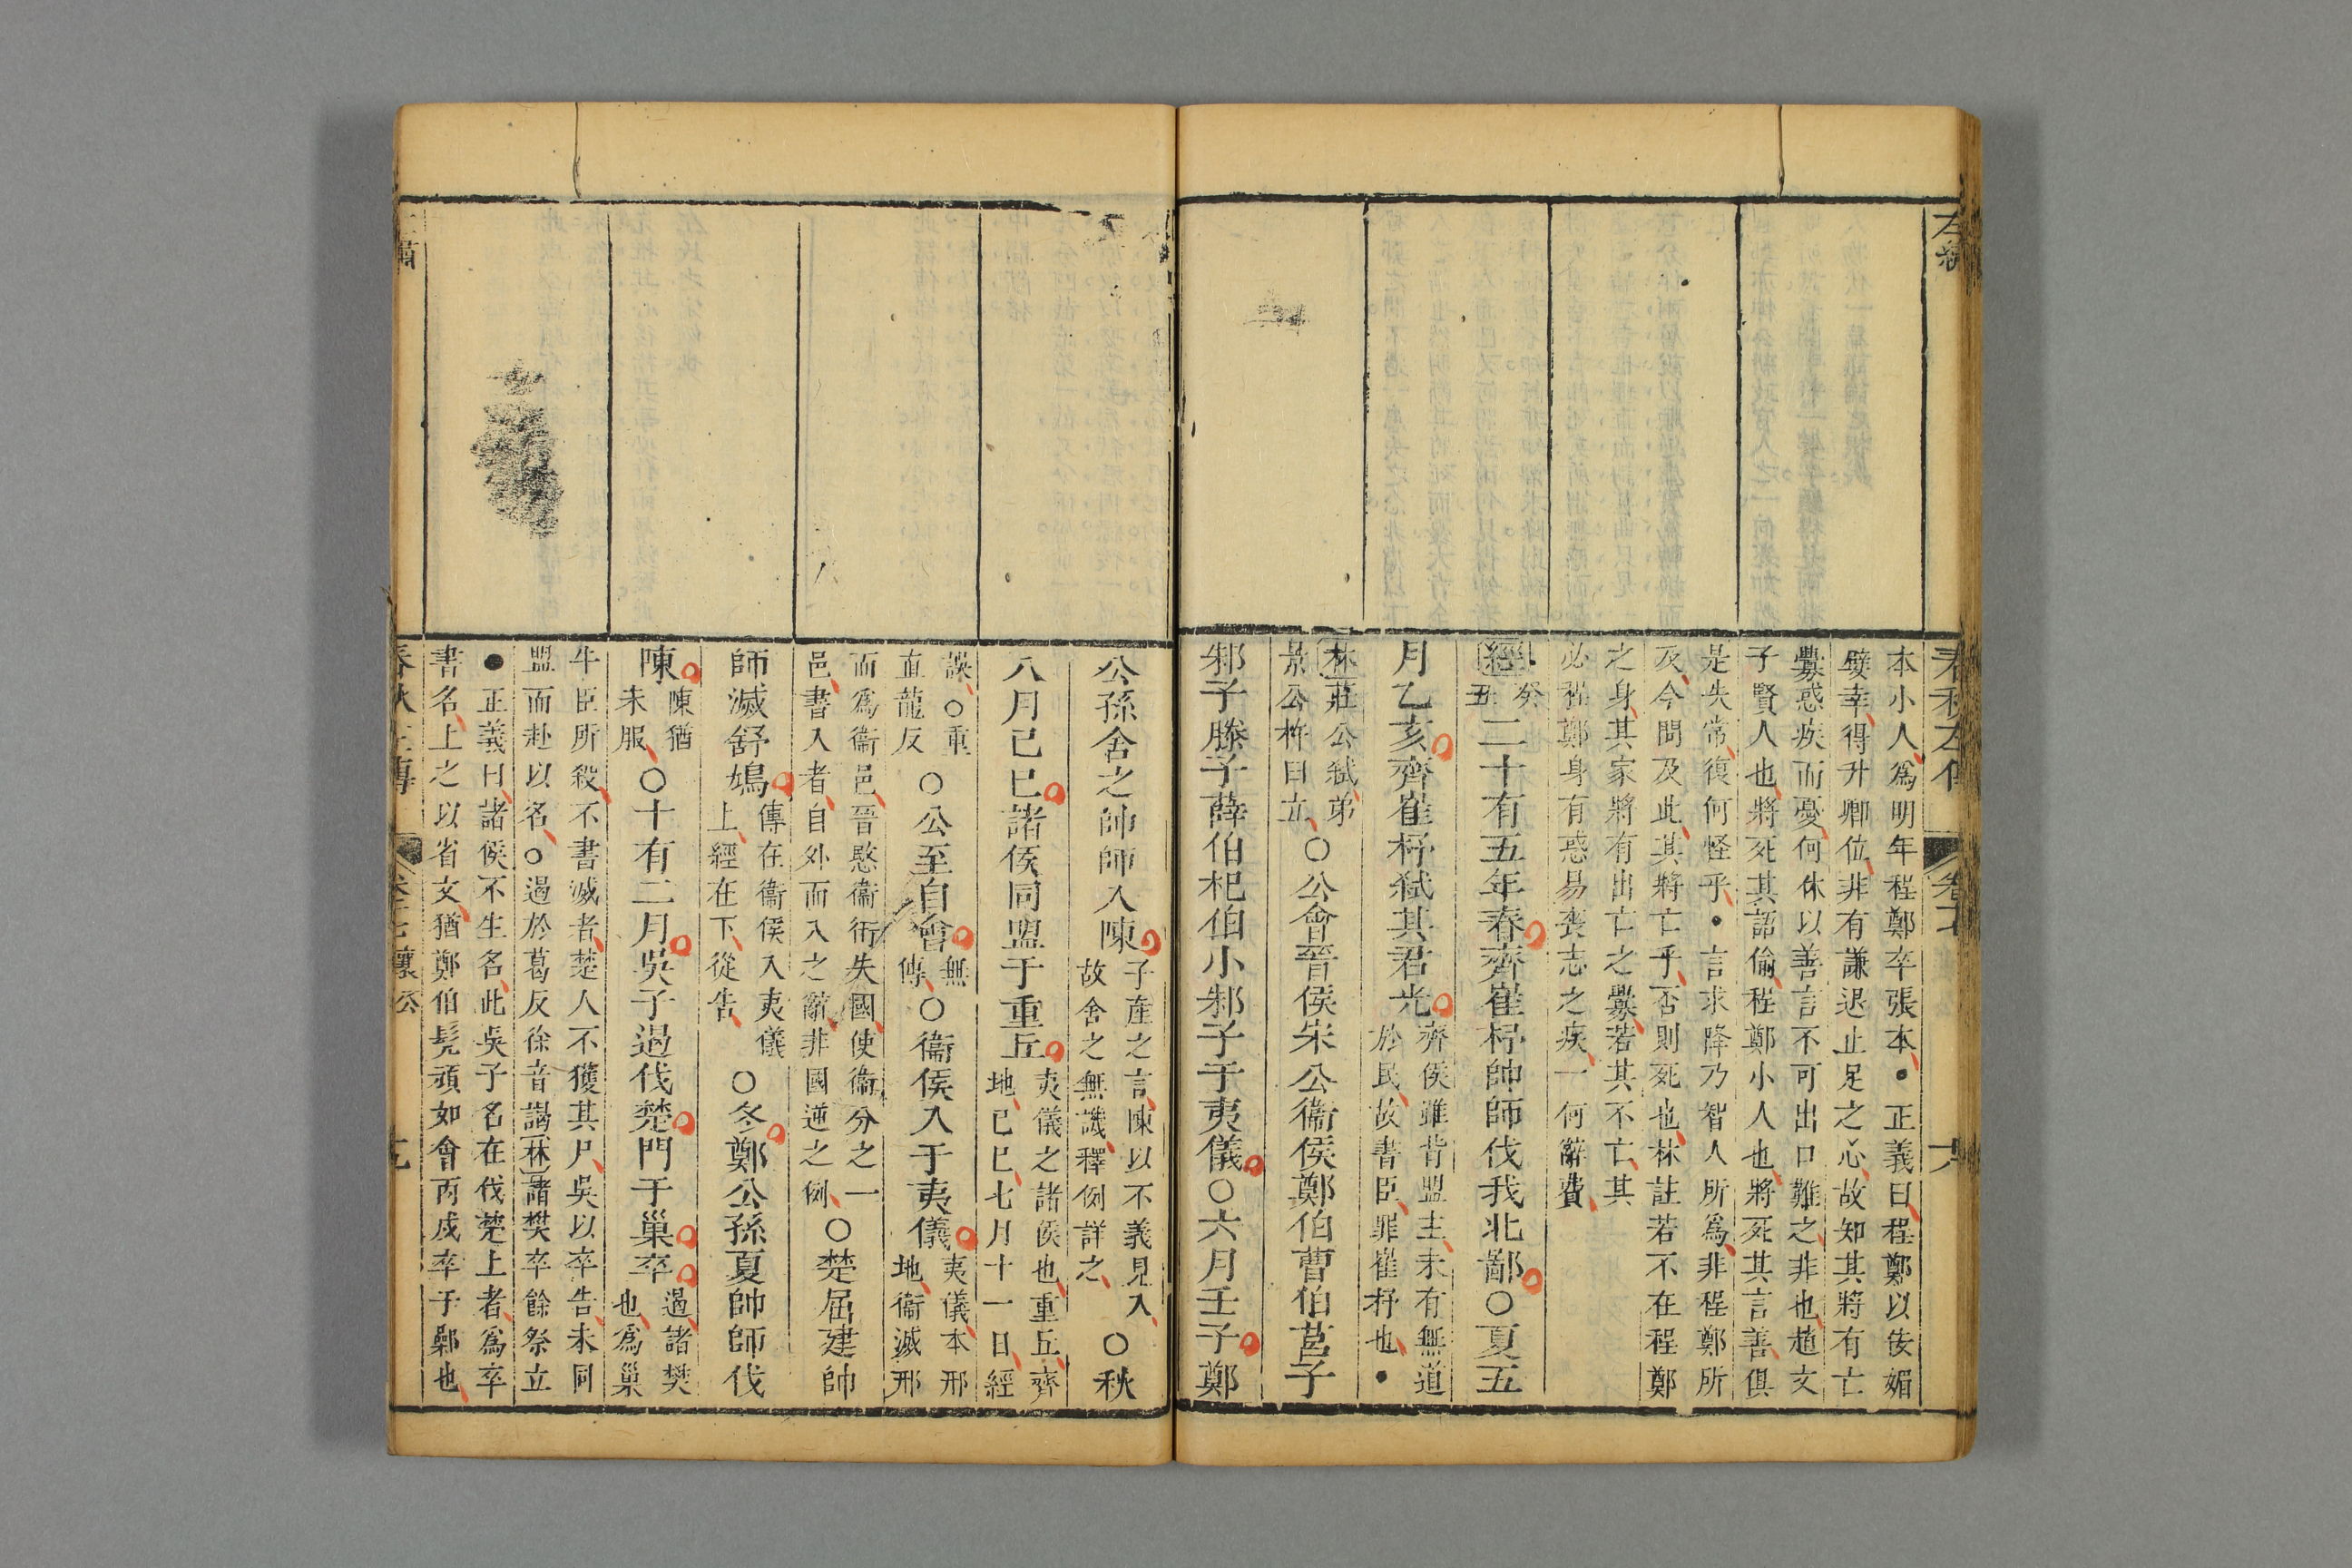 本小人爲明年程鄭卒張本●正義曰程鄭以佞媚
嬖幸得升卿位非有謙退止足之心故知其將有亡
釁惑疾而憂何休以善言不可出口難之非也趙文
子賢人也將死其語偷程鄭小人也將死其言善俱
是失常復何怪乎●言求降乃智人所爲非程鄭所
及今問及此其將亡乎否則死也林註若不在程鄭
之身其家將有出亡之釁若其不亡其
必程鄭身有惑易喪志之疾一何辭費
經癸丑二十有五年春齊崔杼帥師伐我北鄙○夏五
月乙亥齊崔杼弑其君光齊侯雖背盟主未有無道於民故書臣罪崔杼也●
林莊公弑弟景公杵臼立○公會晉侯宋公衞侯鄭伯曹伯莒子
邾子滕子薛伯杞伯小邾子于夷儀○六月壬子鄭
公孫舍之帥師入陳子產之言陳以不義見入故舍之無譏釋例詳之○秋
八月己巳諸侯同盟于重丘夷儀之諸侯也重丘齊地己巳七月十一日經
誤○重直龍反○公至自會無傳○衞侯入于夷儀夷儀本邢地衞滅邢
而爲衞邑晉愍衞衎失國使衞分之一邑書入者自外而入之辭非國逆之例○楚屈建帥
師滅舒鳩傳在衞侯入夷儀上經在下從告○冬鄭公孫夏帥師伐
陳陳猶未服○十有二月吳子遏伐楚門于巢卒遏諸樊也爲巢
牛臣所殺不書滅者楚人不獲其尸吳以卒告未同
盟而赴以名○遏於葛反徐音謁林諸樊卒餘祭立
●正義曰諸侯不生名此吳子名在伐楚上者爲卒
書名上之以省文猶鄭伯髡頑如會丙戌卒于鄵也